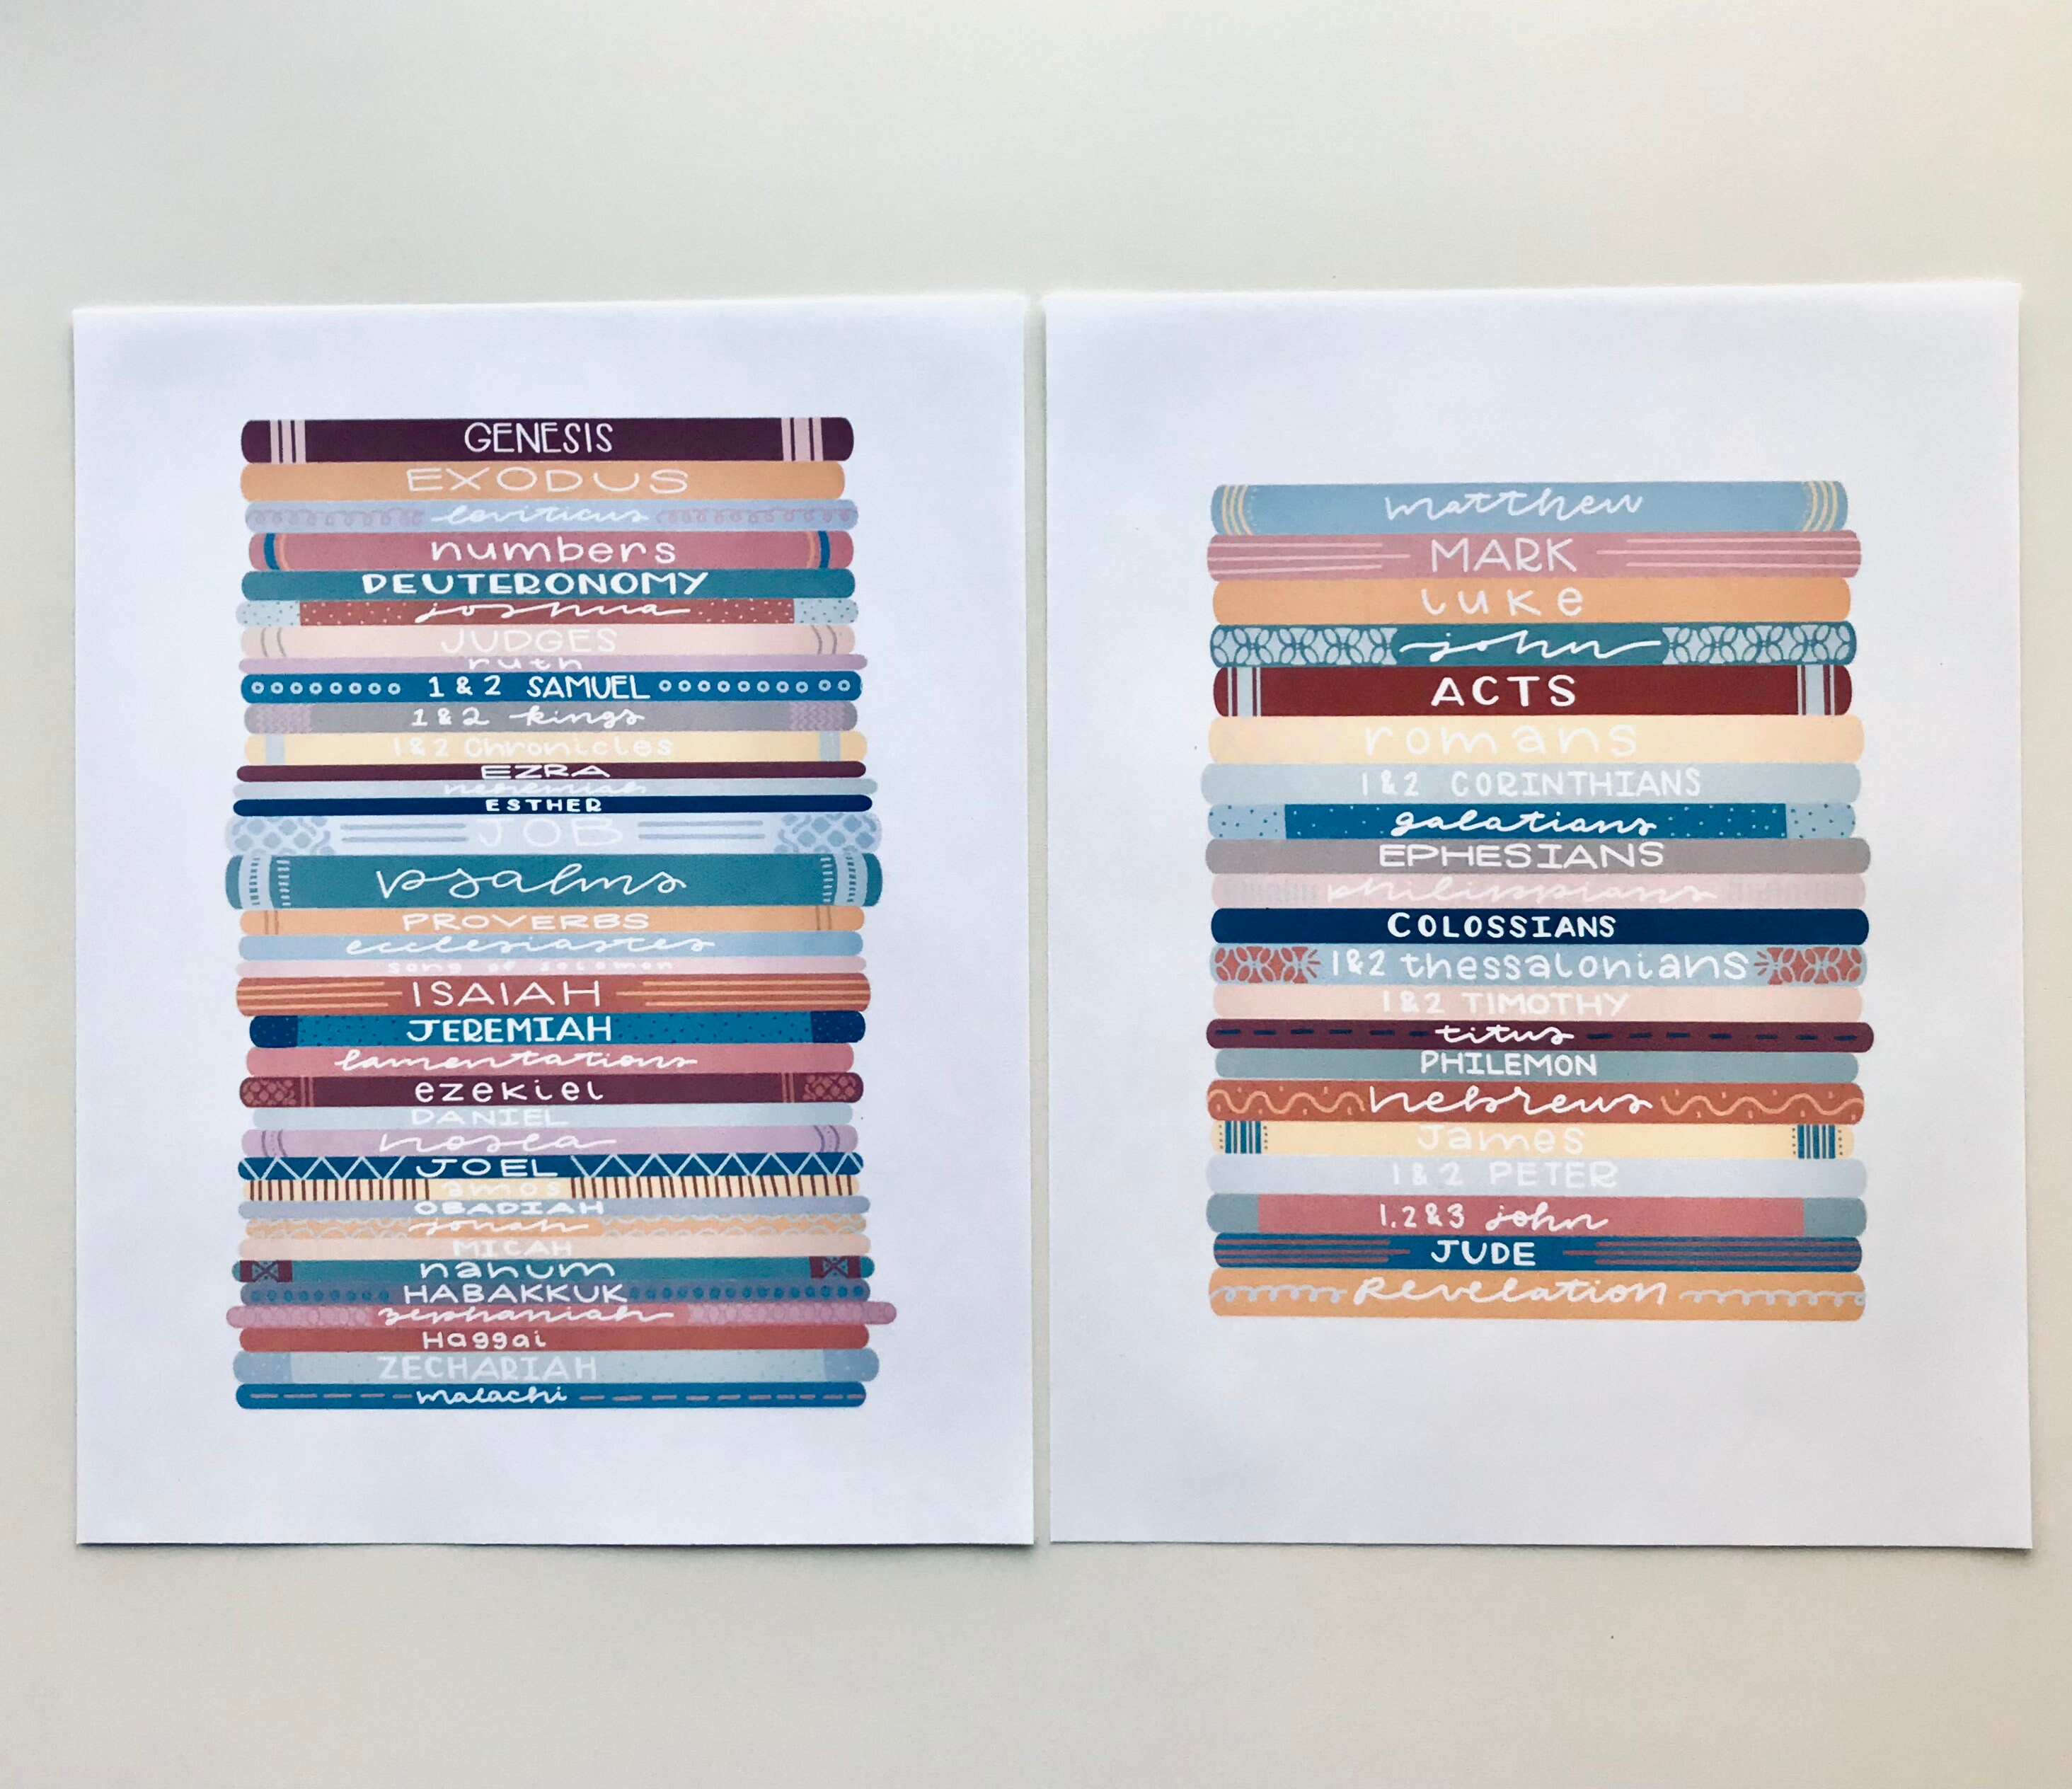 GENESIS
EXODUS
leviticus
numbers
DEUTERONOMY
joshua
JUDGES
ruth
1 & 2 SAMUEL
1 & 2 kings
1 & 2 Chronicles
EZRA
nehemiah
ESTHER
JOB
psalms
PROVERBS
ecclesiastes
song of solomon
ISAIAH
JEREMIAH
lamentations
ezekiel
DANIEL
hosea
JOEL
amos
OBADIAH
jonah
MICAH
nahum
HABAKKUK
zephaniah
Haggai
ZECHARIAH
malachi
matthew
MARK
luke
john
ACTS
romans
1 & 2 CORINTHIANS
galatians
EPHESIANS
philippians
COLOSSIANS
1 & 2 thessalonians
1 & 2 TIMOTHY
titus
PHILEMON
hebrews
James
1 & 2 PETER
1, 2 & 3 john
JUDE
Revelation